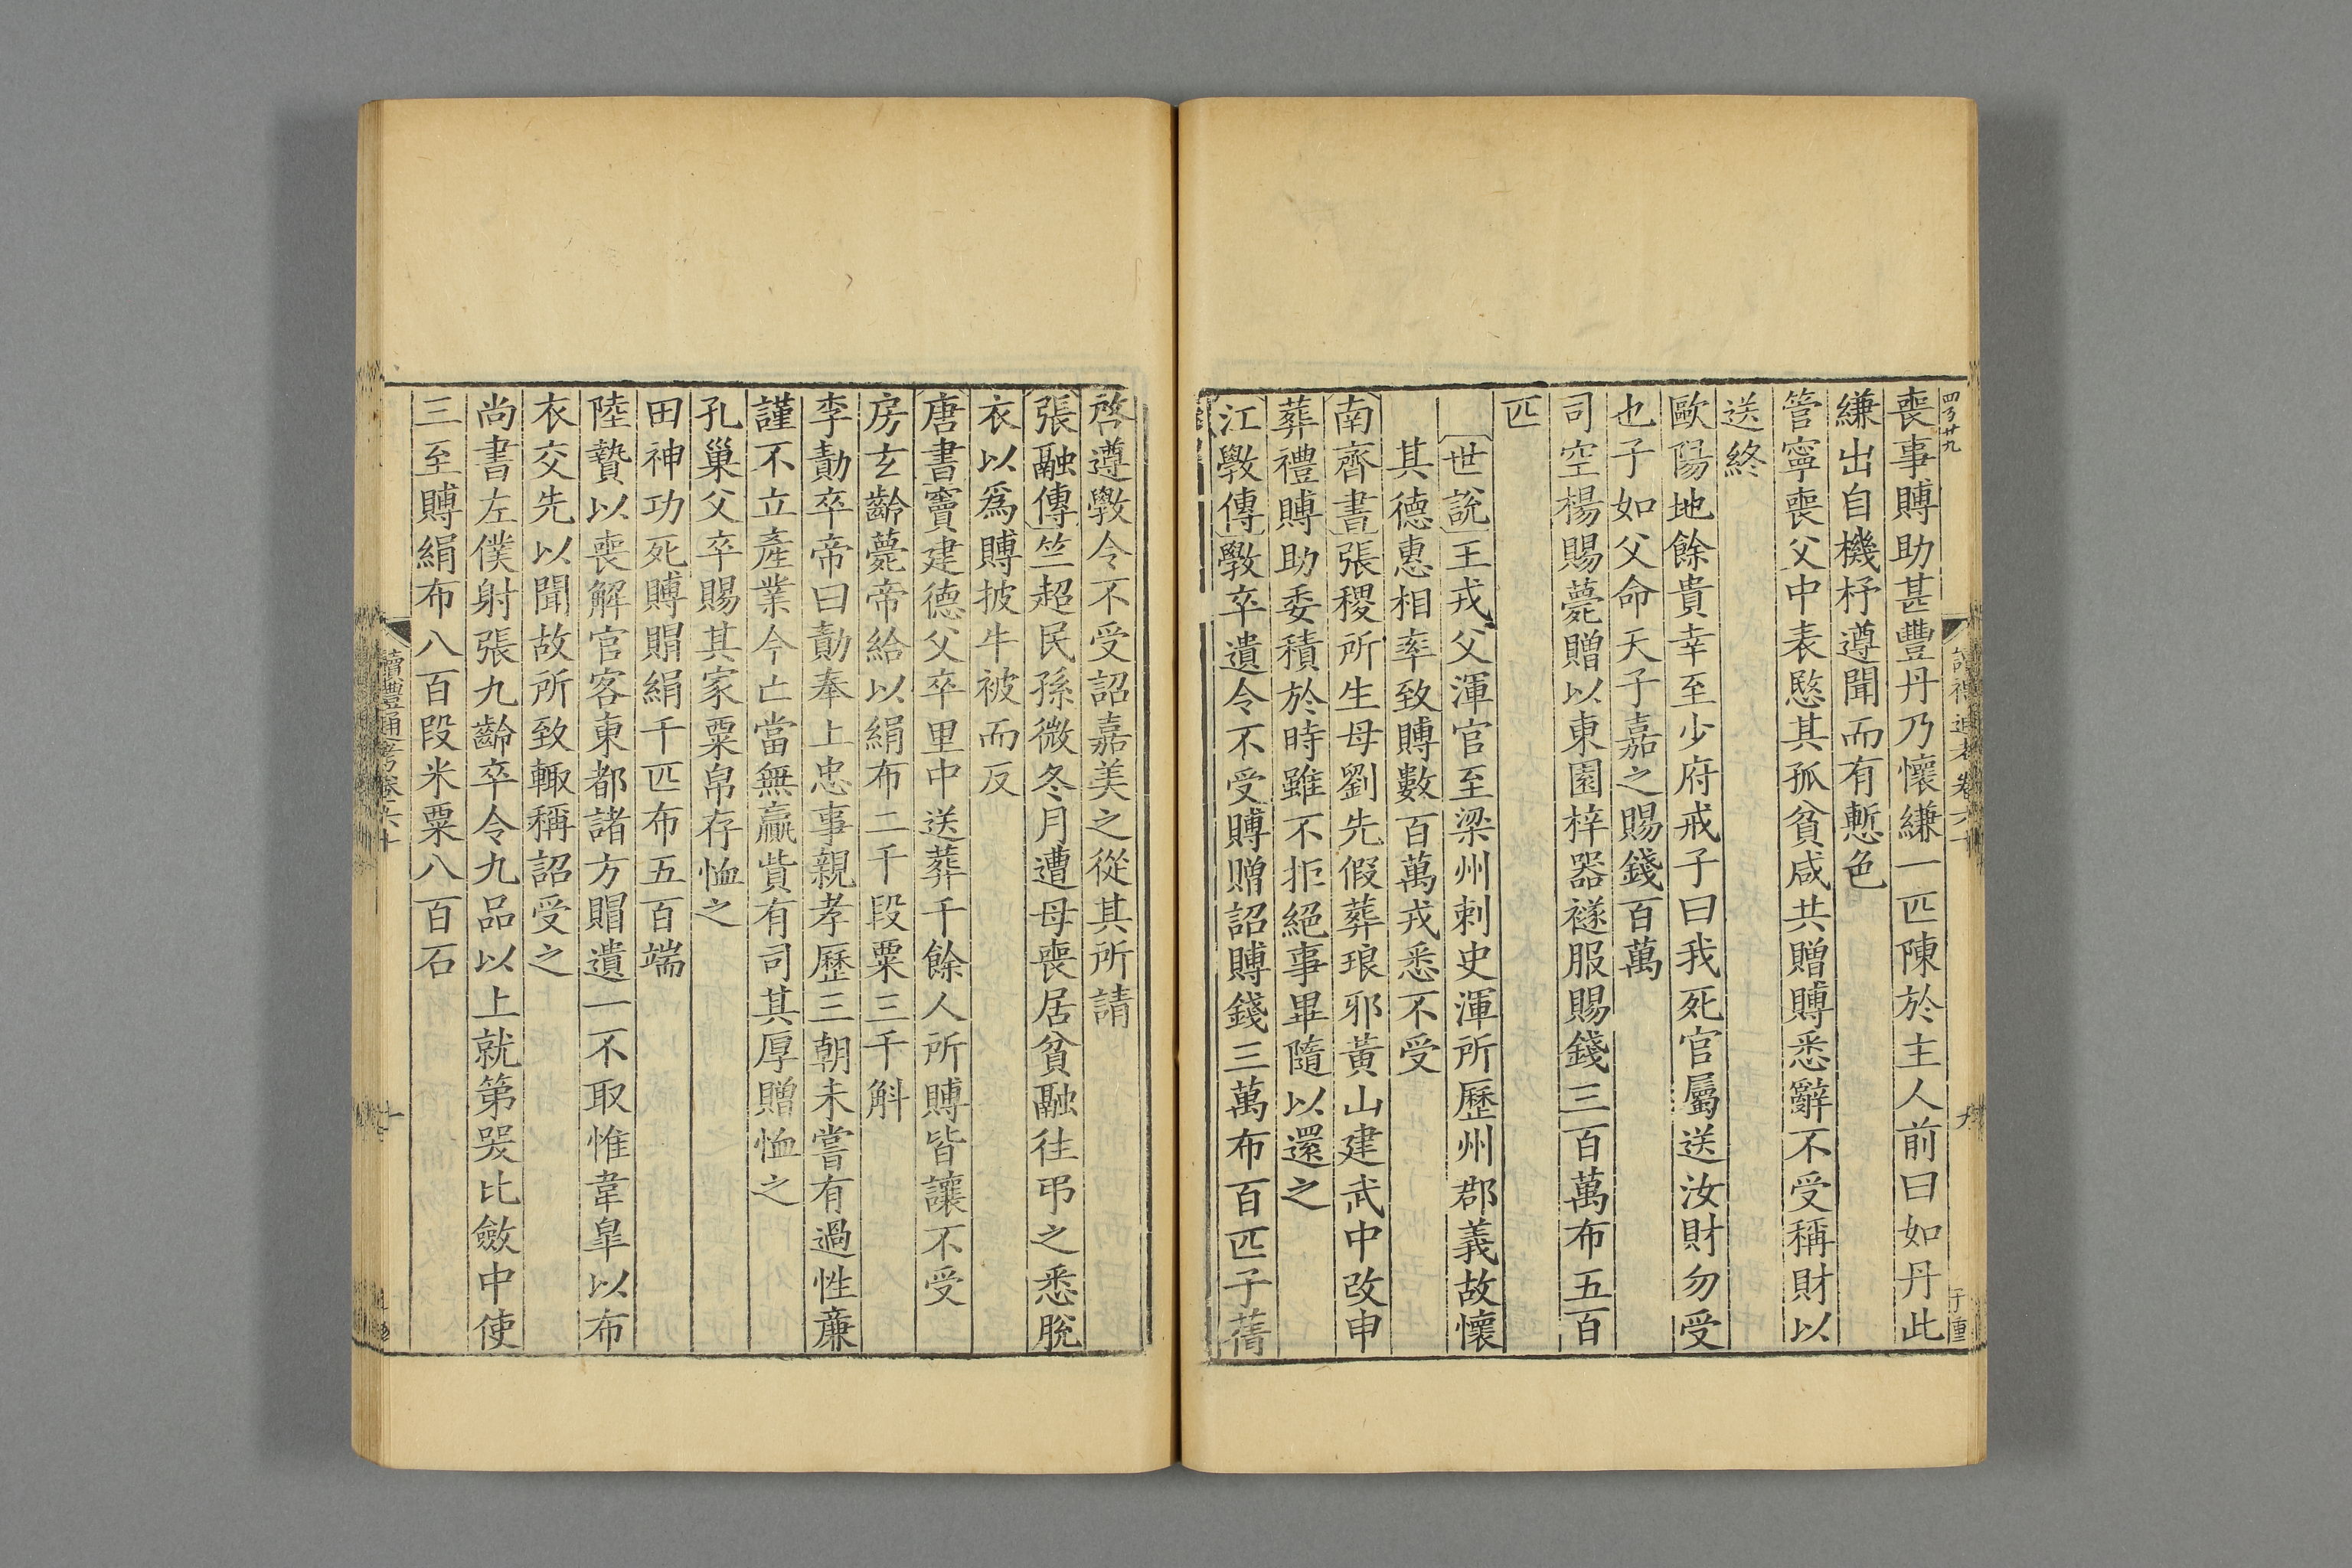 喪事賻助甚豐丹乃懷縑一匹陳於主人前曰如丹此
縑出自機杼遵聞而有慙色
管寧喪父中表愍其孤貧咸共贈賻悉辭不受稱財以
送終
歐陽地餘貴幸至少府戒子曰我死官屬送汝財勿受
也子如父命天子嘉之賜錢百萬
司空楊賜薨贈以東園梓器襚服賜錢三百萬布五百
匹
世說王戎父渾官至梁州刺史渾所歷州郡義故懷
其德惠相率致賻數百萬戎悉不受
南齊書張稷所生母劉先假葬琅邪黃山建武中改申
葬禮賻助委積於時雖不拒絕事畢隨以還之
江斆傳斆卒遺令不受賻贈詔賻錢三萬布百匹子蒨
啓遵斆令不受詔嘉美之從其所請
張融傳竺超民孫微冬月遭母喪居貧融往弔之悉脫
衣以爲賻披牛被而反
唐書竇建德父卒里中送葬千餘人所賻皆讓不受
房玄齡薨帝給以絹布二千段粟三千斛
李勣卒帝曰勣奉上忠事親孝歷三朝未嘗有過性亷
謹不立產業今亡當無贏貲有司其厚贈恤之
孔巢父卒賜其家粟帛存恤之
田神功死賻賵絹千匹布五百端
陸贄以喪解官客東都諸方賵遺一不取惟韋臯以布
衣交先以聞故所致輙稱詔受之
尚書左僕射張九齡卒令九品以上就第哭比斂中使
三至賻絹布八百段米粟八百石
讀禮通考卷六十